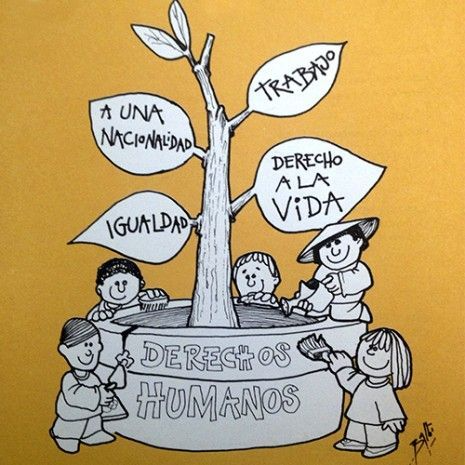 TRABAJO
A UNA
NACIONALIDAD
DERECHO
A LA
VIDA
IGUALDAD
DERECHOS
HUMANOS